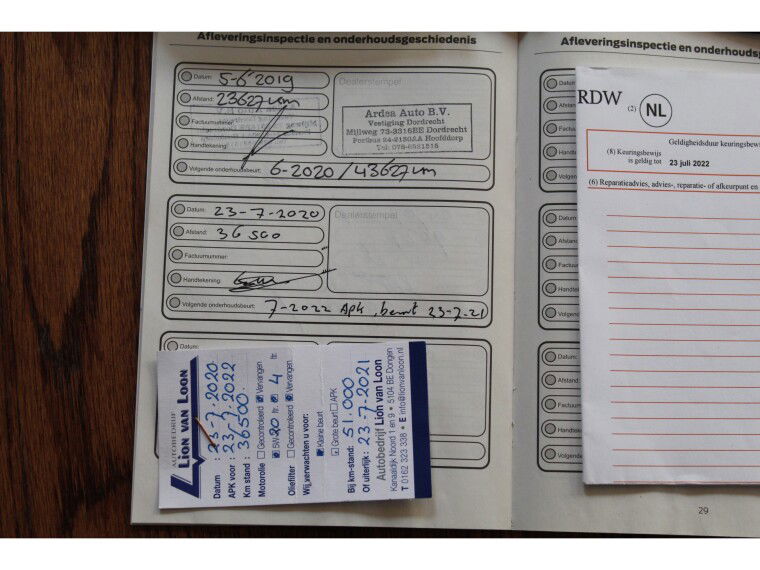 Afleveringsinspectie en onderhoudsgeschiedenis
Datum: 5-6-2019
Afstand: 23627 km
Factuurnummer:
Handtekening:
Volgende onderhoudsbeurt: 6-2020 / 43627 km
Dealerstempel
Ardea Auto B.V.
Vestiging Dordrecht
Mijlweg 73-3316BE Dordrecht
Postbus 24-2130AA Hoofddorp
Tel: 078-6521515
Datum: 23-7-2020
Afstand: 36500
Factuurnummer:
Handtekening:
Volgende onderhoudsbeurt: 7-2022 Apk, beurt 23-7-21
Dealerstempel
Datum:
AUTOBEDRIJF
LION VAN LOON
Datum : 23-7-2020
APK voor : 23-7-2022
Km stand : 36500
Motorolie Gecontroleerd Vervangen
5W 30 ltr. 4 ltr.
Oliefilter Gecontroleerd Vervangen
Wij verwachten u voor:
Kleine beurt
Grote beurt APK
Bij km-stand: 51.000
Of uiterlijk: 23-7-2021
Autobedrijf Lion van Loon
Kanaaldijk Noord 1 en 9 • 5104 BE Dongen
T 0162 323 338 • E info@lionvanloon.nl
Afleveringsinspectie en onderhoudsg
Datum:
Afstand
Factuu
Handte
Volgen
Datum:
Afstand:
Factuu
Handte
Volgend
Datum:
Afstand:
Factuur
Handtek
Volgend
29
RDW (2) NL
Geldigheidsduur keuringsbewi
(8) Keuringsbewijs
is geldig tot 23 juli 2022
(6) Reparatieadvies, advies-, reparatie- of afkeurpunt en